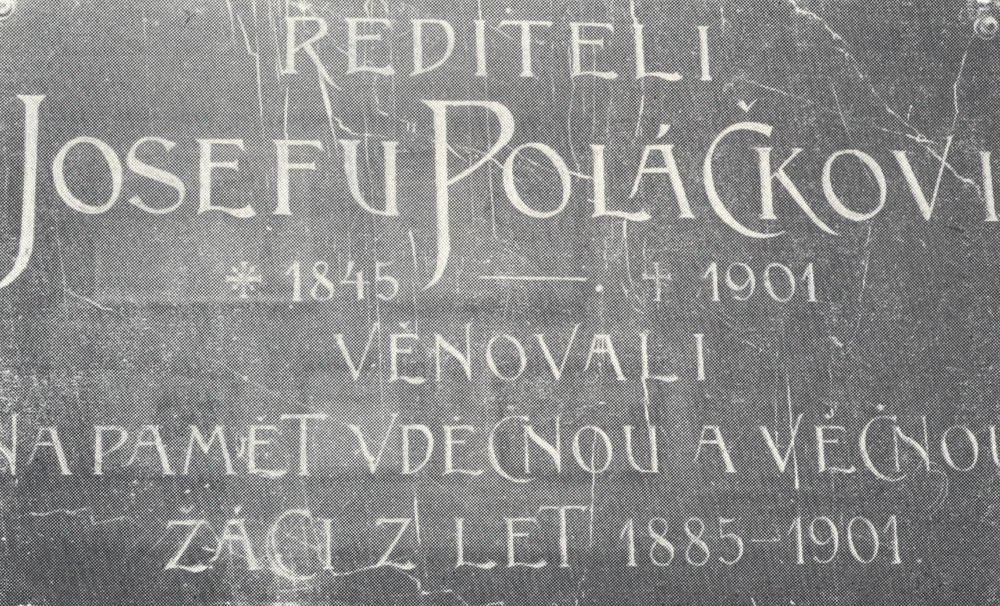 REDITELI
JOSEFU POLÁČKOVI
* 1845 — . † 1901
VĚNOVALI
NA PAMĚT VDĚČNOU A VĚČNOU
ŽÁCI Z LET 1885-1901.